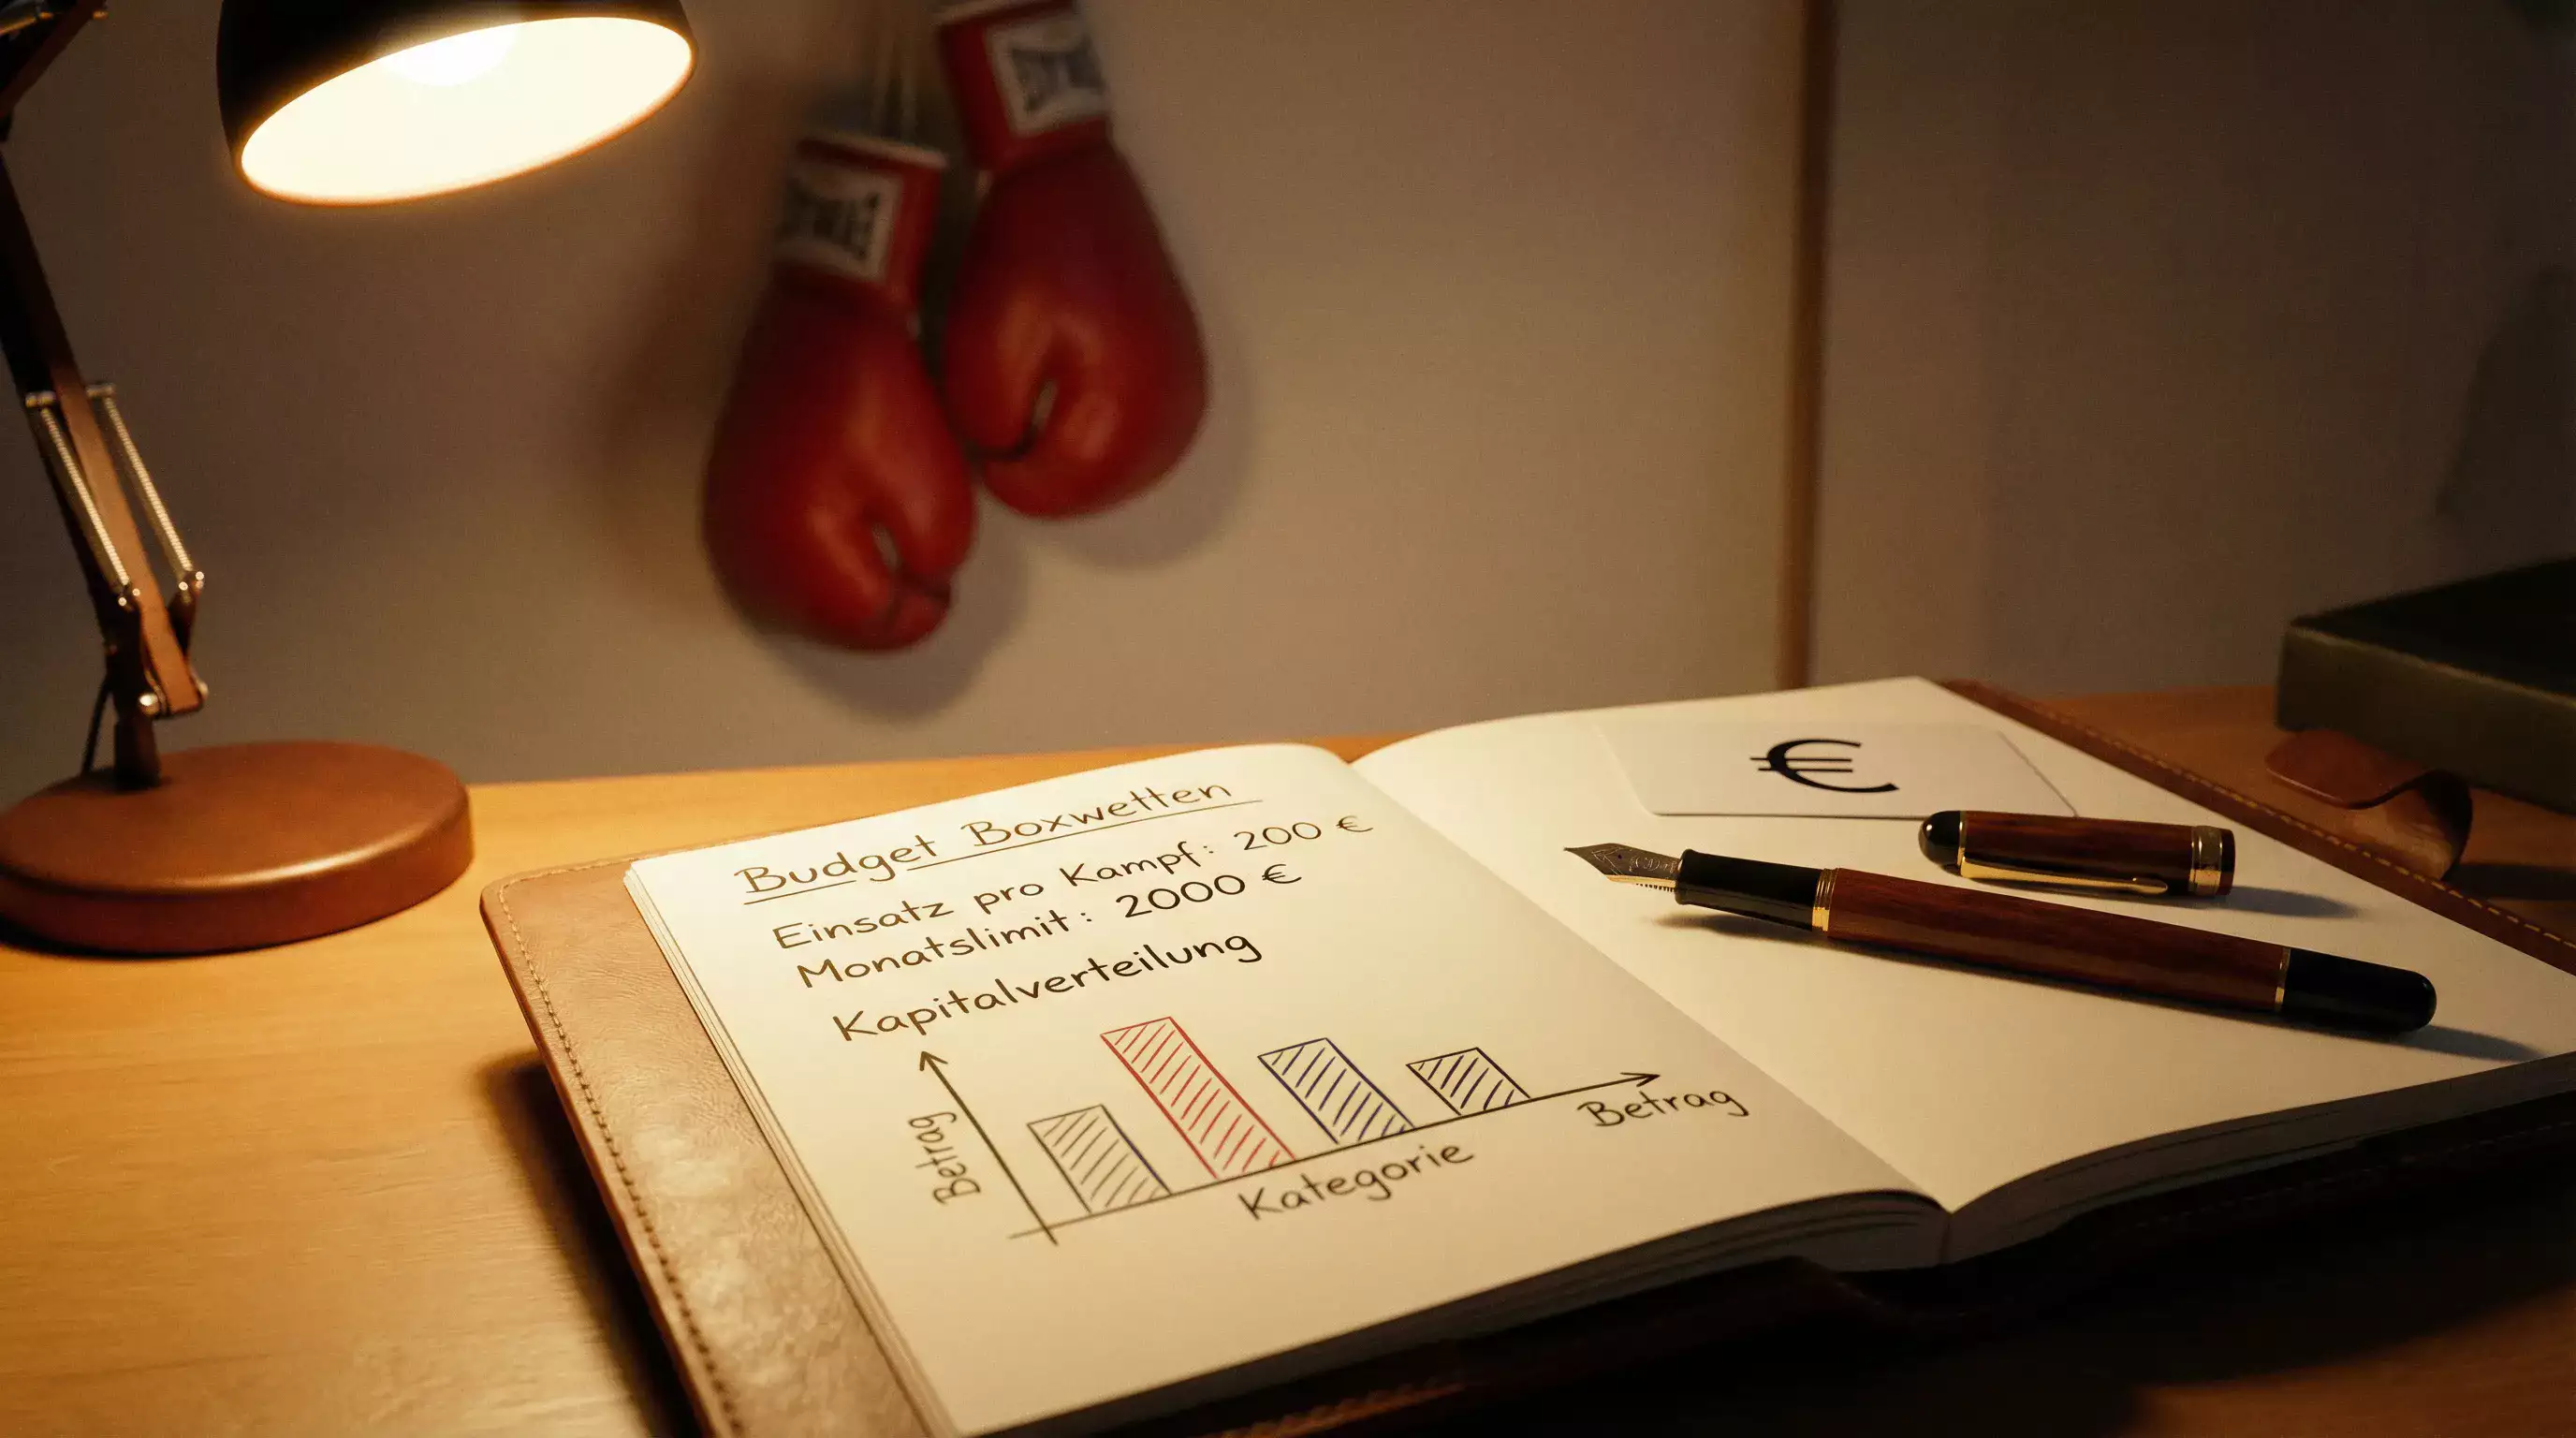 Budget Boxwetten
Einsatz pro Kampf: 200 €
Monatslimit: 2000 €
Kapitalverteilung
Betrag
Kategorie
Betrag
€